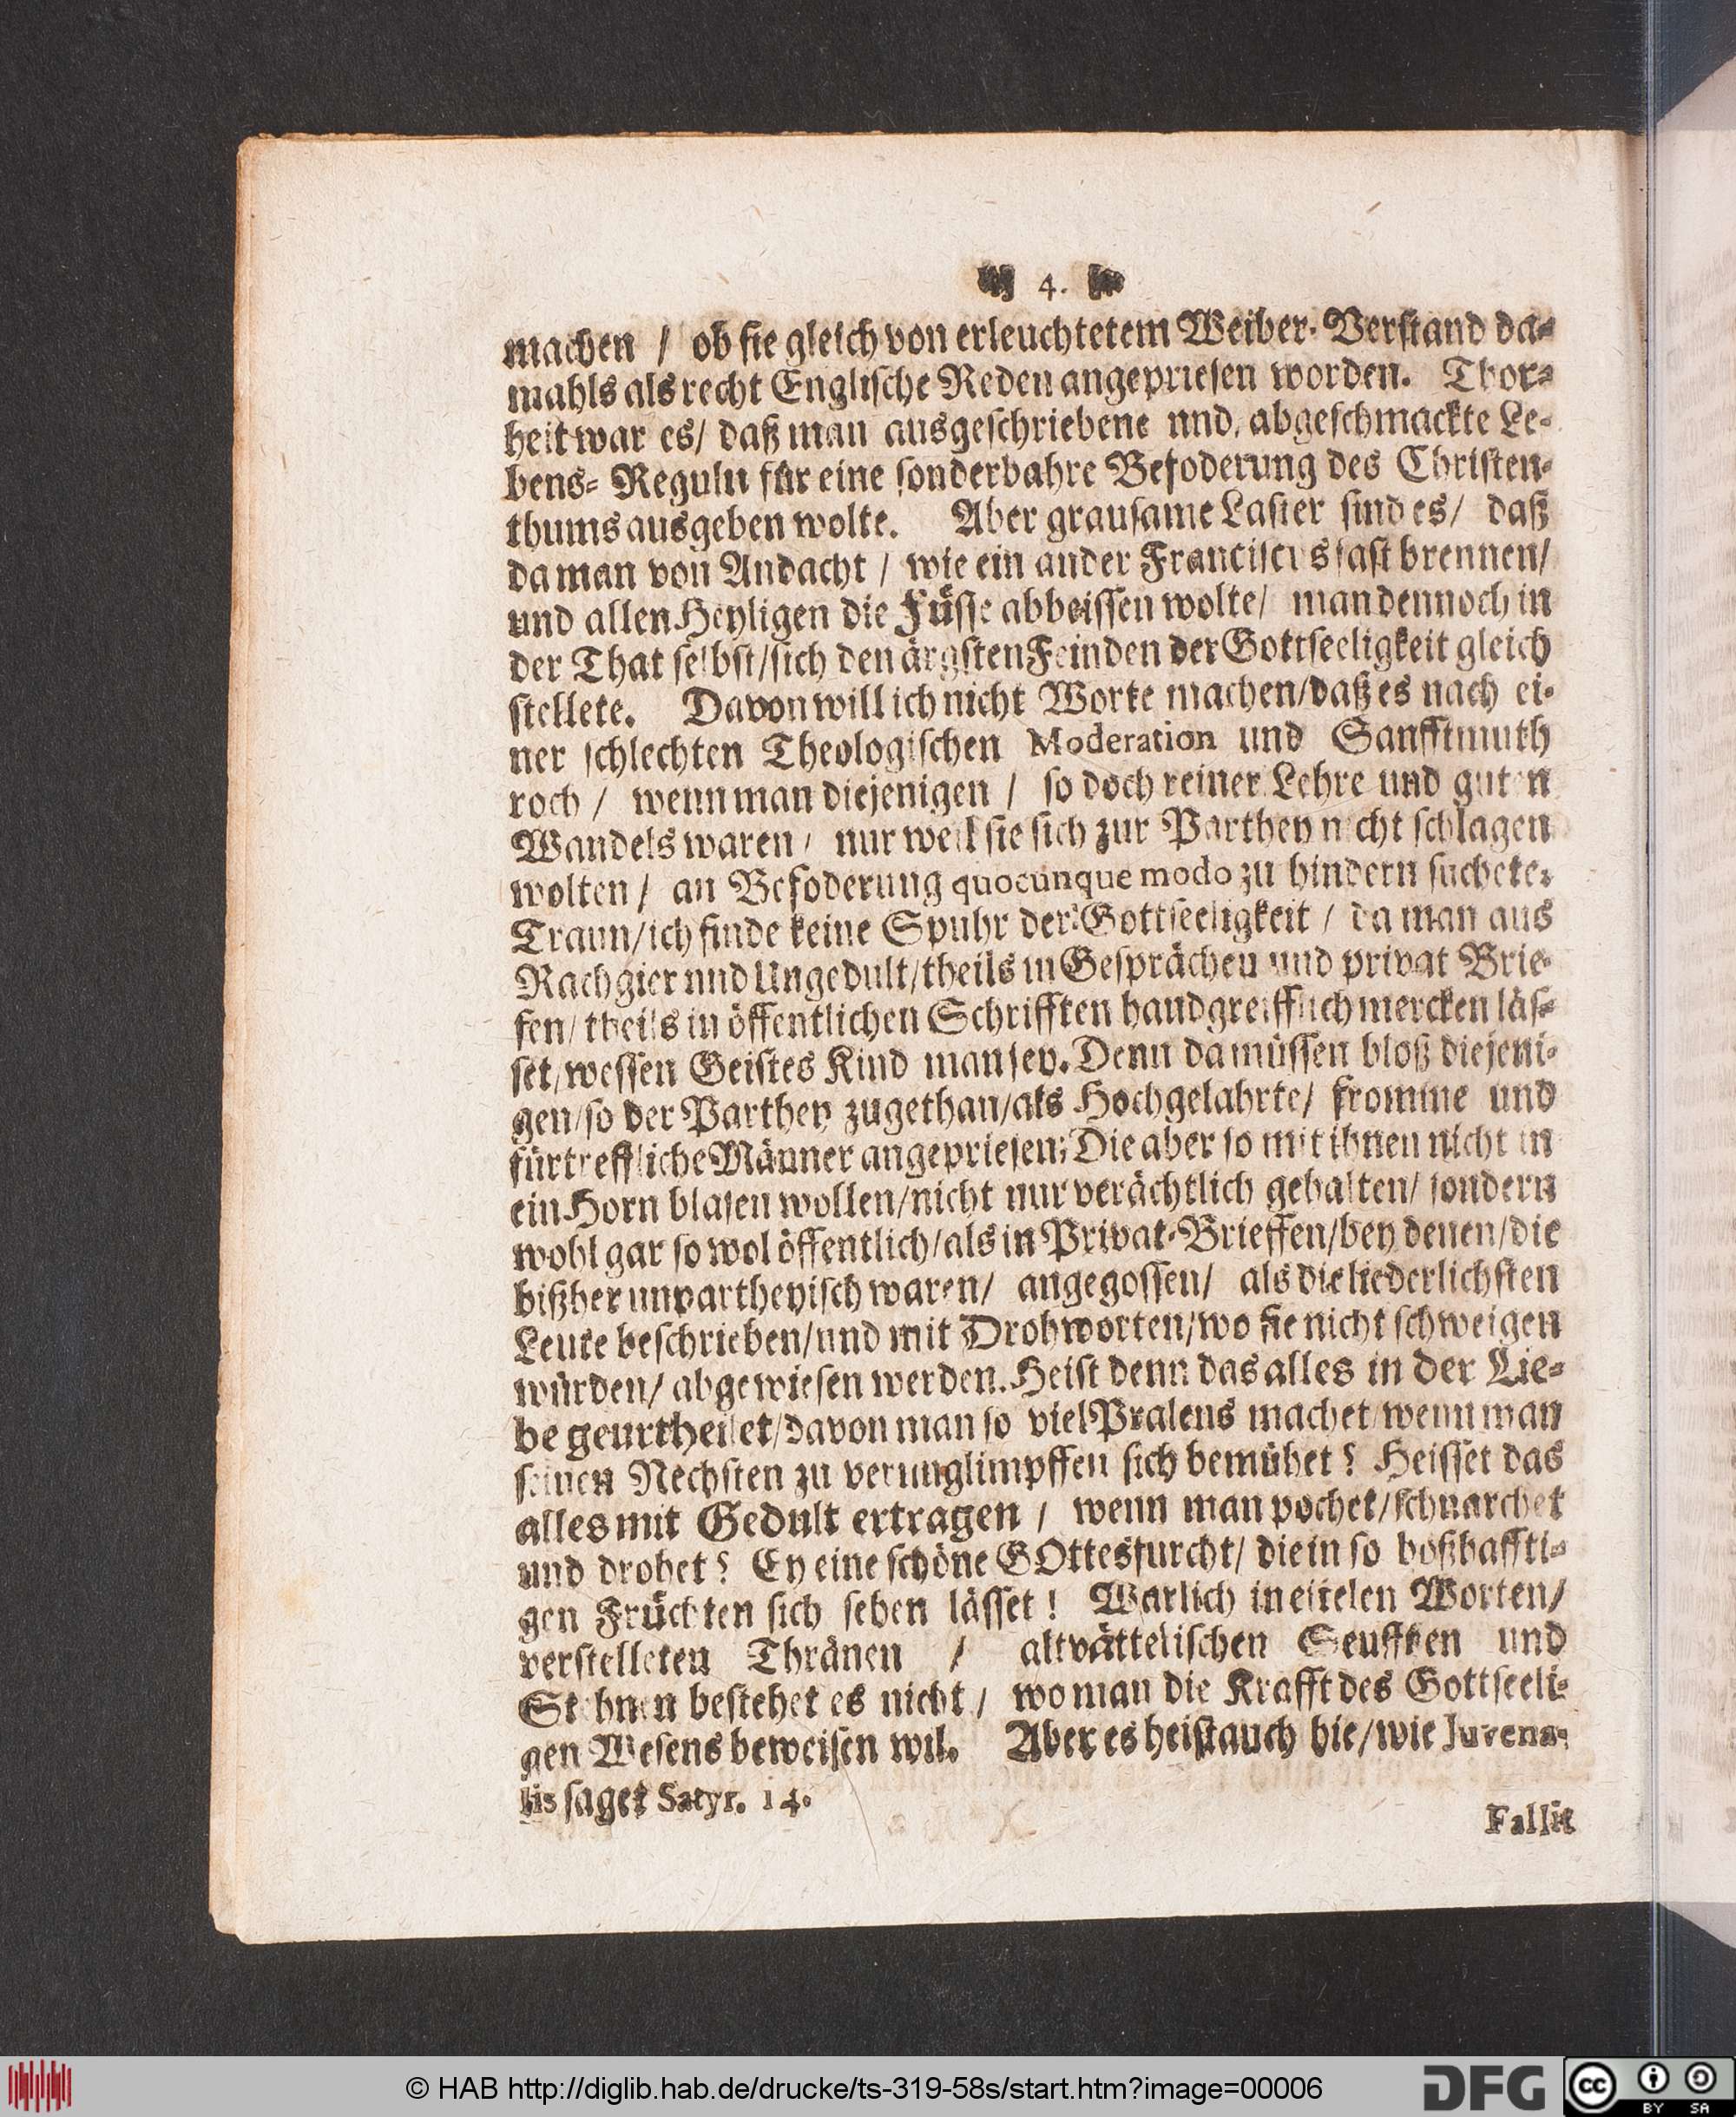 4.
machen / ob sie gleich von erleuchtetem Weiber-Verstand da-
mahls als recht Englische Reden angepriesen worden. Thor-
heit war es/ daß man ausgeschriebene nnd abgeschmackte Le-
bens-Reguln für eine sonderbahre Befoderung des Christen-
thums ausgeben wolte. Aber grausame Laster sind es/ daß
da man von Andacht / wie ein ander Franciscus fast brennen/
und allen Heyligen die Füsse abbeissen wolte/ man dennoch in
der That selbst/sich den ärgsten Feinden der Gottseeligkeit gleich
stellete. Davon will ich nicht Worte machen/daß es nach ei-
ner schlechten Theologischen Moderation und Sanfftmuth
roch / wenn man diejenigen / so doch reiner Lehre und guten
Wandels waren / nur weil sie sich zur Parthey nicht schlagen
wolten / an Befoderung quocunque modo zu hindern suchete.
Traun/ich finde keine Spuhr der Gottseeligkeit / da man aus
Rachgier nnd Ungedult/theils in Gesprächen und privat Brie-
fen/ theils in öffentlichen Schrifften handgreifflich mercken läs-
set/wessen Geistes Kind man sey. Denn da müssen bloß diejeni-
gen/so der Parthey zugethan/als Hochgelahrte/ fromme und
fürtreffliche Männer angepriesen; Die aber so mit ihnen nicht in
ein Horn blasen wollen/nicht nur verächtlich gehalten/ sondern
wohl gar so wol öffentlich/als in Privat-Brieffen/bey denen/die
bißher unpartheyisch waren/ angegossen/ als die liederlichsten
Leute beschrieben/und mit Drohworten/wo sie nicht schweigen
würden/ abgewiesen werden. Heist denn das alles in der Lie-
be geurtheilet/davon man so viel Pralens machet/wenn man
seinen Nechsten zu verunglimpffen sich bemühet? Heisset das
alles mit Gedult ertragen / wenn man pochet/schnarchet
und drohet? Ey eine schöne GOttesfurcht/ die in so boßhaffti-
gen Früchten sich sehen lässet! Warlich in eitelen Worten/
verstelleten Thränen / altvättelischen Seufften und
Stehnen bestehet es nicht / wo man die Krafft des Gottseeli-
gen Wesens beweisen wil. Aber es heist auch hie/wie Juvena-
lis saget Satyr. 14.
Fallit
© HAB http://diglib.hab.de/drucke/ts-319-58s/start.htm?image=00006
DFG
cc BY SA